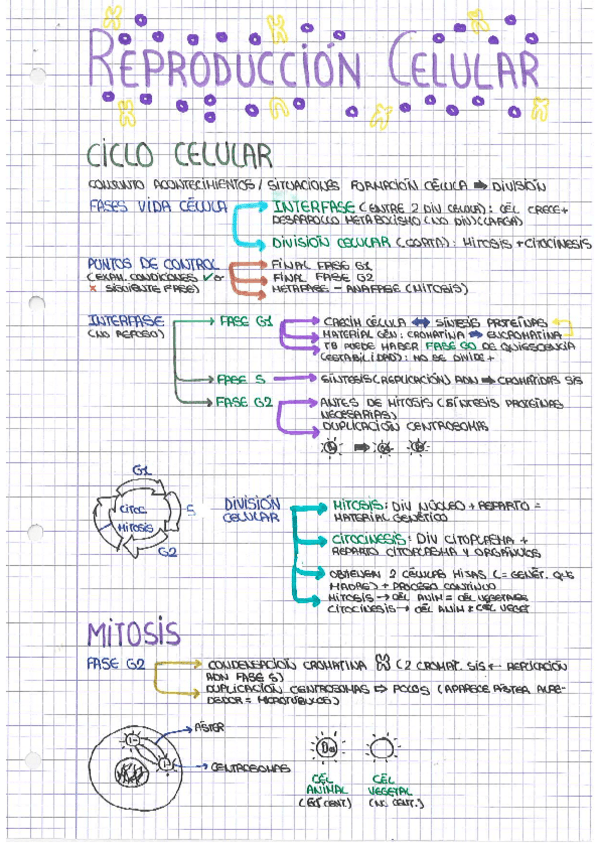 REPRODUCCIÓN CELULAR
CICLO CELULAR
CONJUNTO ACONTECIMIENTOS/SITUACIONES FORMACIÓN CÉLULA ➡ DIVISIÓN
FASES VIDA CÉLULA
INTERFASE (ENTRE 2 DIV CELULA): CÉL CRECE +
DESARROLLO METABOLISMO (NO DIV)(LARGA)
DIVISIÓN CELULAR (CORTA): MITOSIS + CITOCINESIS
PUNTOS DE CONTROL
(EXAM. CONDICIONES ✓ o
X SIGUIENTE FASE)
FINAL FASE G1
FINAL FASE G2
METAFASE - ANAFASE (MITOSIS)
INTERFASE
(NO REPOSO)
FASE G1
CRECIM CÉLULA ⬌ SÍNTESIS PROTEÍNAS
MATERIAL GÉN: CROMATINA ➡ EUCROMATINA
TB PUEDE HABER FASE G0 DE QUIESCENCIA
(ESTABILIDAD): NO SE DIVIDE +
FASE S
SÍNTESIS (REPLICACIÓN) ADN ➡ CROMÁTIDAS SIS
FASE G2
ANTES DE MITOSIS (SÍNTESIS PROTEÍNAS
NECESARIAS)
DUPLICACIÓN CENTROSOMAS
G1
S
G2
CITOC.
MITOSIS
DIVISIÓN
CELULAR
MITOSIS: DIV NÚCLEO + REPARTO =
MATERIAL GENÉTICO
CITOCINESIS: DIV CITOPLASMA +
REPARTO CITOPLASMA Y ORGÁNULOS
OBTIENEN 2 CÉLULAS HIJAS (= GENÉT. QUE
MADRE) + PROCESO CONTINUO
MITOSIS → CÉL ANIM = CÉL VEGETALES
CITOCINESIS → CÉL ANIM ≠ CÉL VEGET
MITOSIS
FASE G2
CONDENSACIÓN CROMATINA (2 CROMAT. SIS ← REPLICACIÓN
ADN FASE S)
DUPLICACIÓN CENTROSOMAS ⇨ POLOS (APARECE ÁSTER ALRE-
DEDOR = MICROTÚBULOS)
ÁSTER
CENTROSOMAS
CÉL
ANIMAL
CÉL
VEGETAL
(NO CENT.)